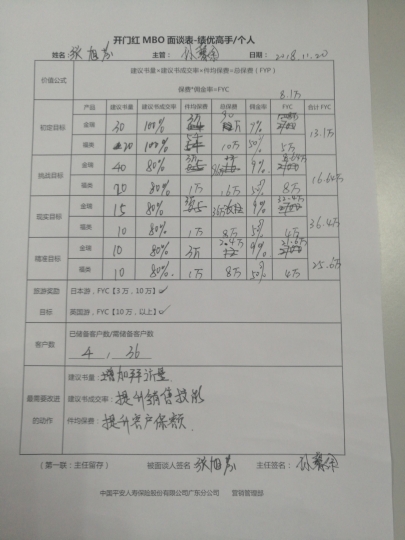 开门红 MBO 面谈表-绩优高手/个人
姓名: 主管: 日期: 2018.11.20
价值公式 建议书量×建议书成交率×件均保费=总保费(FYP)
保费*佣金率=FYC
8.1万
产品 建议书量 建议书成交率 件均保费 总保费 佣金率 FYC 合计 FYC
初定目标 金瑞 30 100% 9% 13.1万
福类 100% 10万 50% 5万
挑战目标 金瑞 40 80% 9% 16.64万
福类 20 80% 1万 16万 50% 8万
现实目标 金瑞 15 80% 9% 36.4万
福类 10 80% 1万 8万 50% 4万
精准目标 金瑞 10 80% 3万 9% 25.6万
福类 10 80% 1万 8万 50% 4万
旅游奖励 日本游,FYC【3万,10万】✓
目标 英国游,FYC【10万,以上】✓
客户数 已储备客户数/需储备客户数
4 , 36
建议书量: 增加拜访量
最需要改进 建议书成交率: 提升销售技能
的动作 件均保费: 提升客户保额.
(第一联:主任留存) 被面谈人签名: 主任签名:
中国平安人寿保险股份有限公司广东分公司 营销管理部